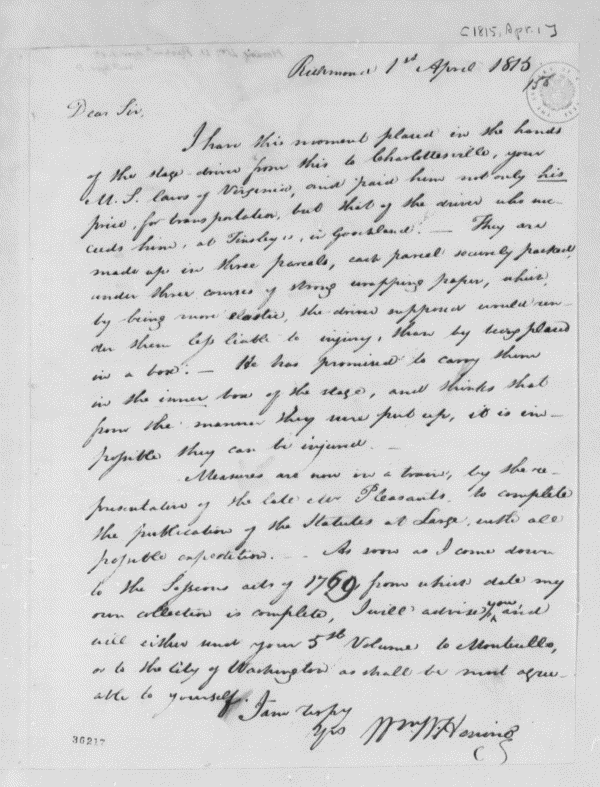 [1815, Apr. 1]
Richmond 1st April 1815
158
Dear Sir,
I have this moment placed in the hands
of the stage-driver from this to Charlottesville, your
M. S. laws of Virginia, and paid him not only his
price, for transportation, but that of the driver who suc-
ceeds him, at Tinsley's, in Goochland. — They are
made up in three parcels, each parcel securely packed,
under three courses of strong wrapping paper, which,
by being more elastic, the driver supposed would ren-
der them less liable to injury, than by being placed
in a box. — He has promised to carry them
in the inner box of the stage, and thinks that
from the manner they were put up, it is im-
possible they can be injured. —
Measures are now in a train, by the re-
presentatives of the late Mr Pleasants, to complete
the publication of the Statutes at Large, with all
possible expedition. — As soon as I come down
to the Sessions acts of 1769 from which date my
own collection is complete, I will advise you, and
will either send your 5th Volume to Monticello,
or to the City of Washington as shall be most agree-
able to yourself.
I am respy
Yrs Wm W: Hening
36217